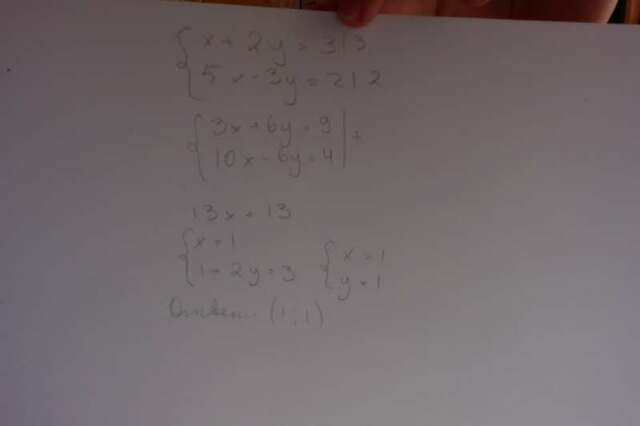 x + 2y = 3 | 3
5x - 3y = 2 | 2
3x + 6y = 9 | +
10x - 6y = 4
13x = 13
x = 1
1 + 2y = 3
x = 1
y = 1
Ответ: (1; 1)